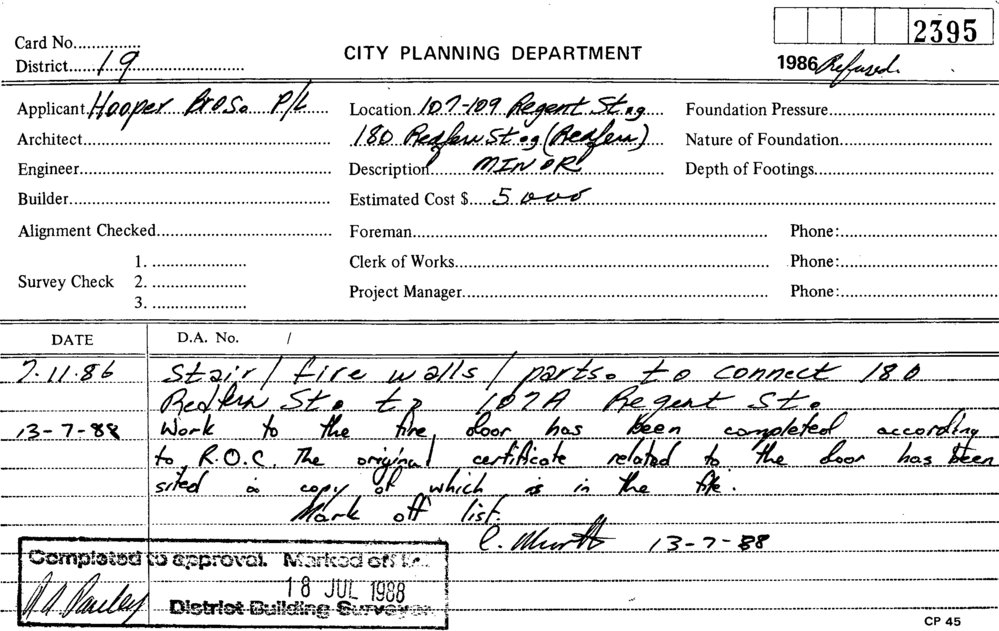 2395
Card No...............
CITY PLANNING DEPARTMENT
District......19......................
1986 Refused.
Applicant. Hooper Bros. P/L
Location. 107-109 Regent St.
Foundation Pressure
Architect
180 Redfern St. (Redfern)
Nature of Foundation
Engineer
Description MINOR
Depth of Footings
Builder
Estimated Cost $ 5000
Alignment Checked
Foreman
Phone:
1.
Clerk of Works
Phone:
Survey Check 2.
Project Manager
Phone:
3.
DATE D.A. No. /
7.11.86 Stair / fire walls / parts. to connect 180
Redfern St. to 107A Regent St.
13-7-88 Work to the fire door has been completed according
to R.O.C. The original certificate related to the door has been
sited a copy of which is in the file.
Mark off list.
13-7-88
Completed to approval. Marked off
18 JUL 1988
District Building Surveyor
CP 45